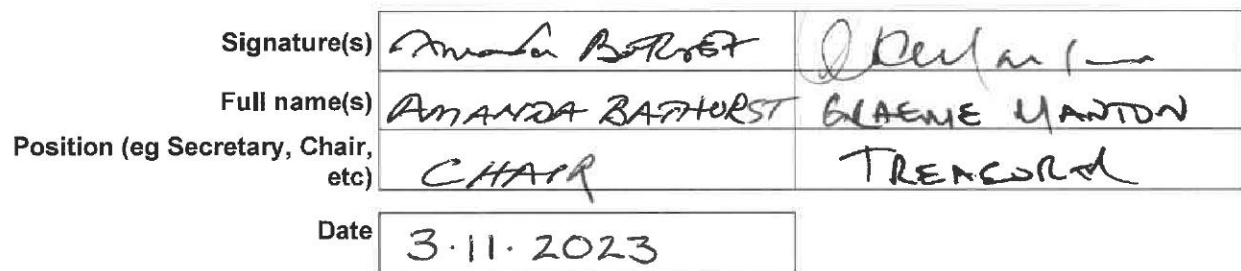 Signature(s) Amanda Bathurst
Full name(s) AMANDA BATHURST GRAEME MANTON
Position (eg Secretary, Chair, etc) CHAIR TREASURER
Date 3.11.2023